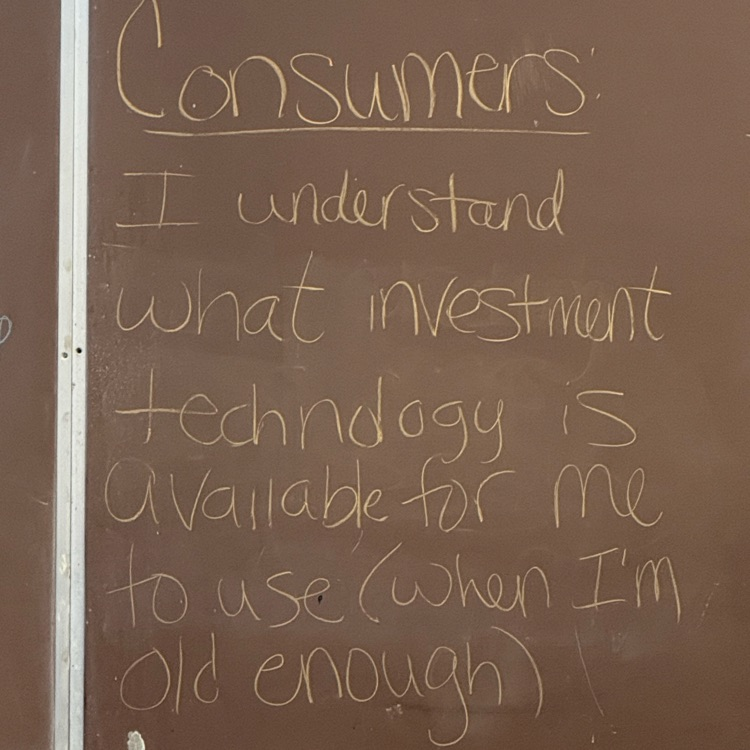 Consumers:
I understand
what investment
technology is
available for me
to use (when I'm
old enough)